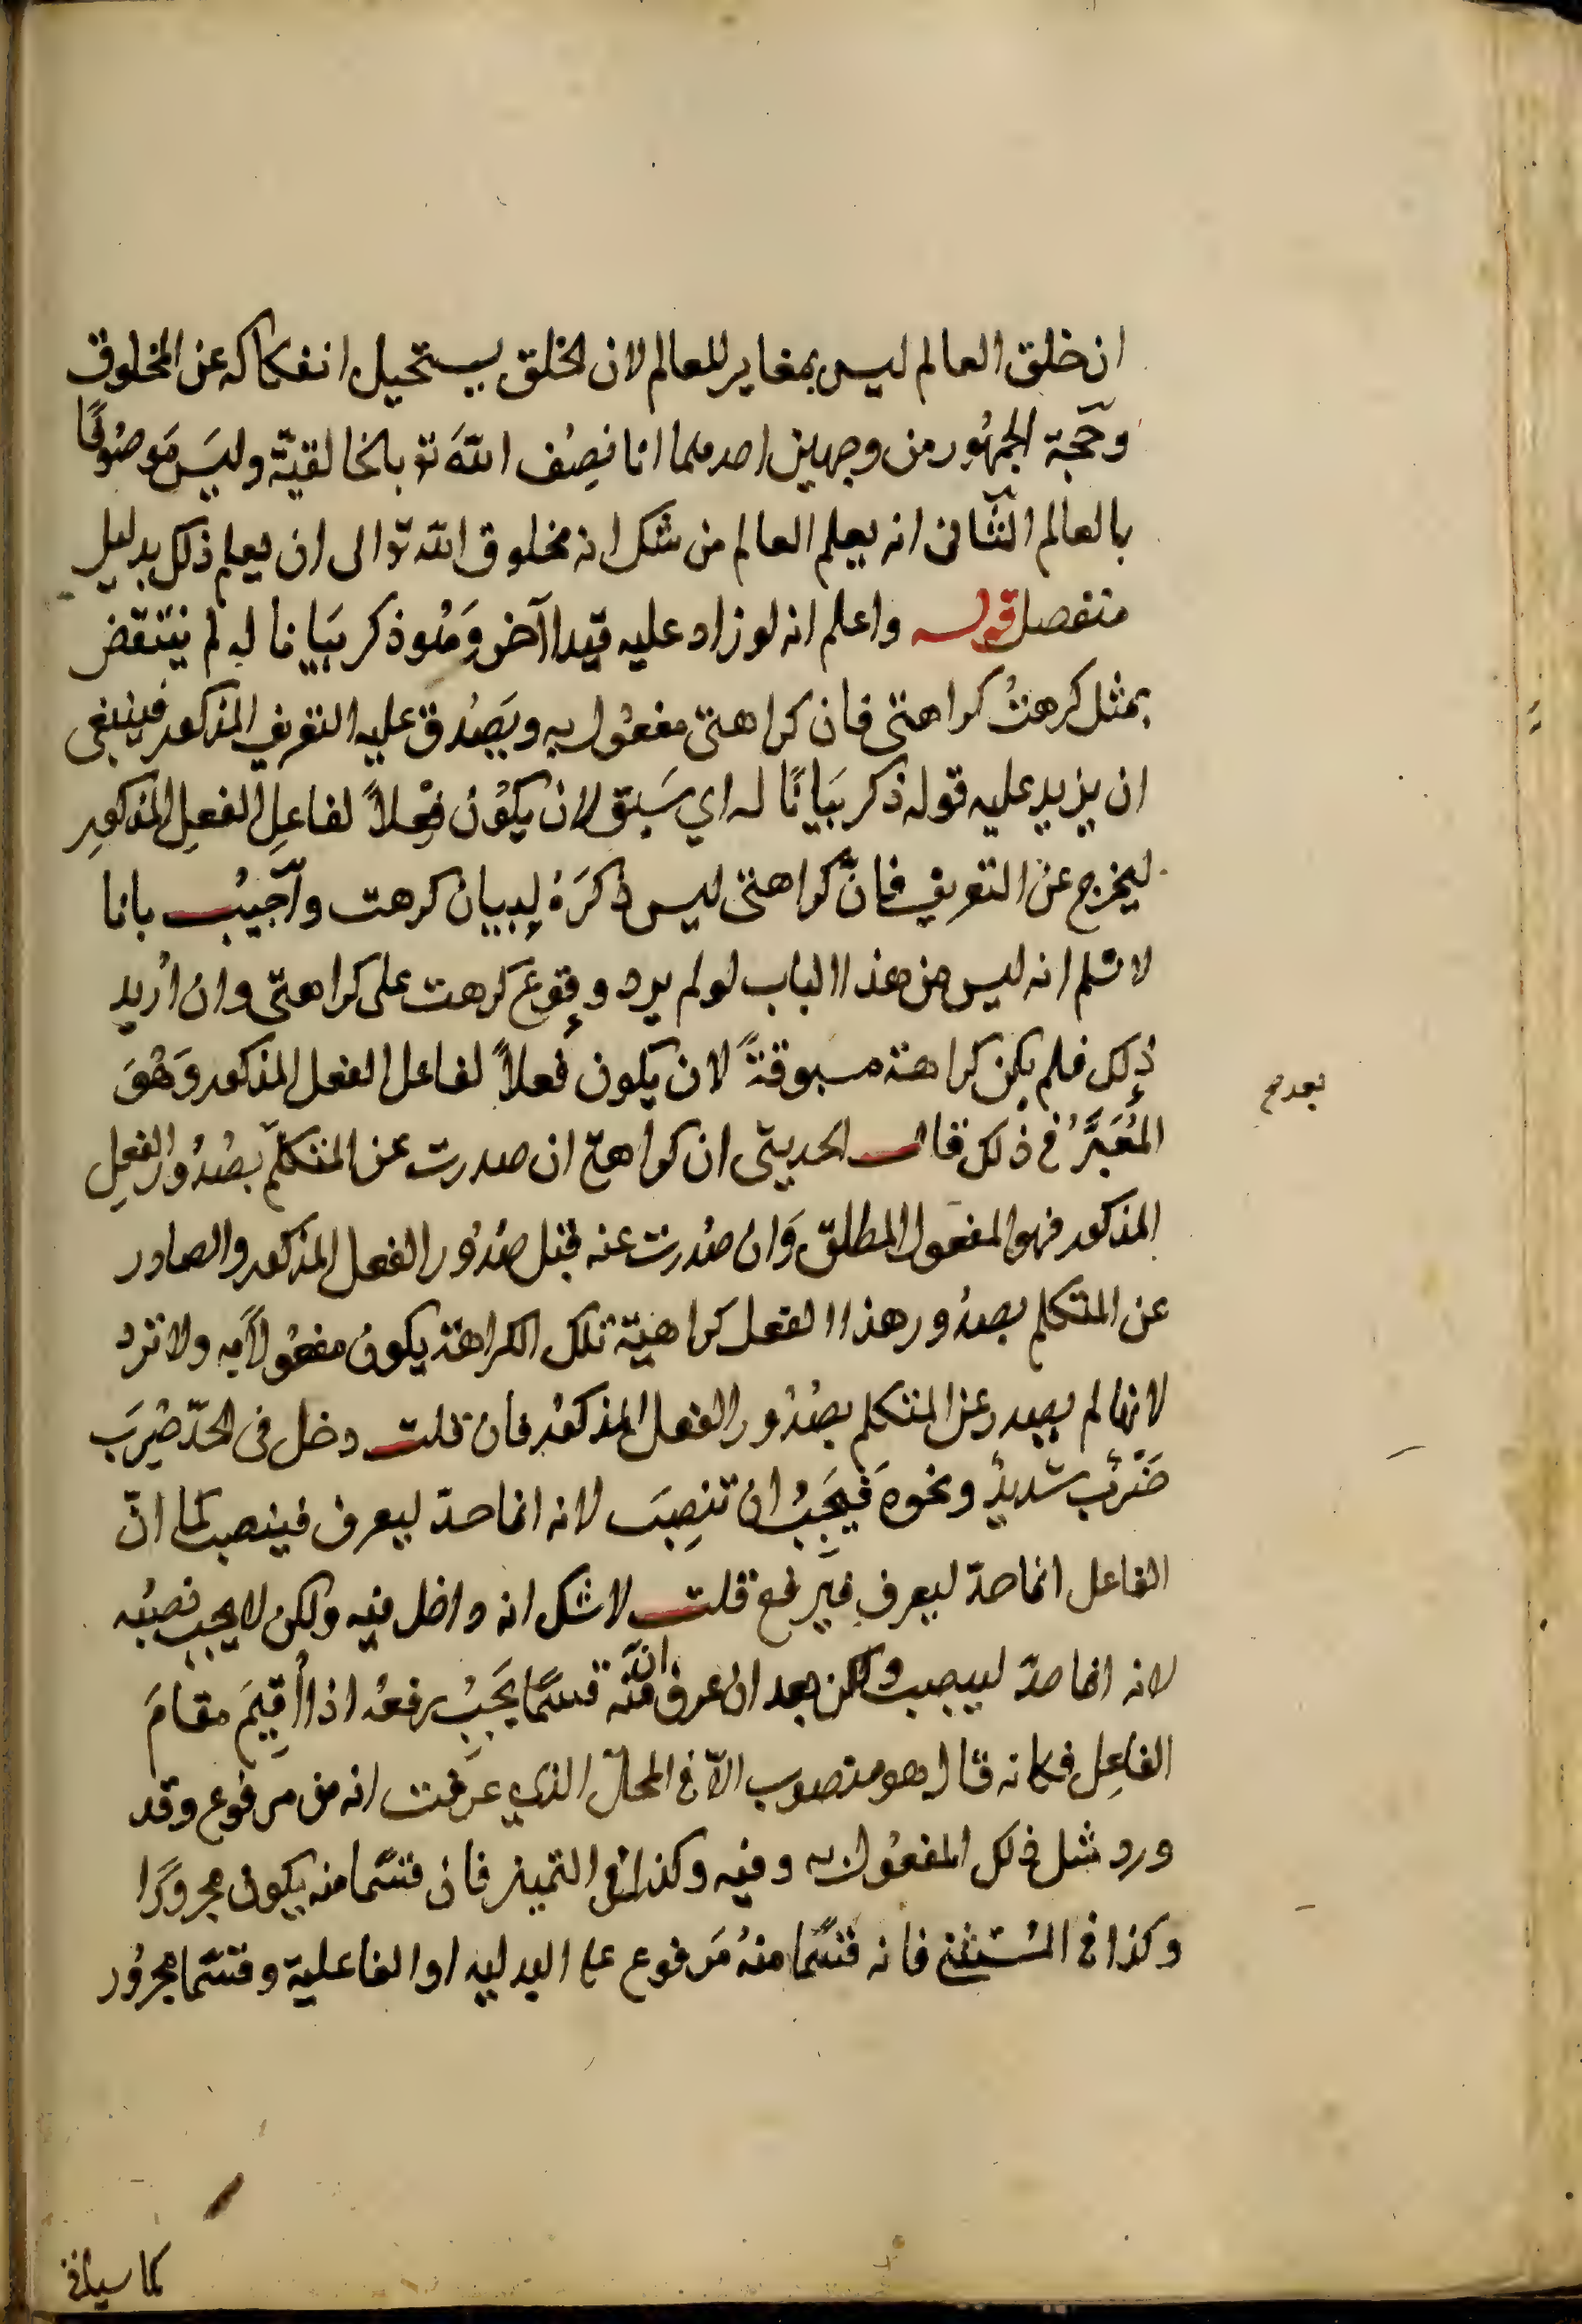 ان خلق العالم ليس بمغاير للعالم لان الخلق يستحيل انفكاكه عن المخلوق
وحجة الجمهور من وجهين احدهما انا نصف الله تع بالخالقية وليس موصوفا
بالعالم الثاني انه يعلم العالم من شك انه مخلوق الله تع الى ان يعلم ذلك بدليل
منفصل قوله واعلم انه لو زاد عليه قيدا آخر وهو ذكر بيانا له لم ينتقض
بمثل كرهتُ كراهتي فان كراهتي مفعول به ويصدق عليه التعريف المذكور فينبغي
ان يزيد عليه قوله ذكر بيانًا له اي سبق لان يكون فعلاً لفاعل الفعل المذكور
ليخرج عن التعريف فانّ كراهتي ليس ذكره لبيان كرهت وأجيب بانا
لا نسلم انه ليس من هذا الباب لو لم يرد وقوع كرهت على كراهتي وان أريد
ذلك فلم يكن كراهة مسبوقةً لان يكون فعلاً لفاعل الفعل المذكور وهو
المعبَّر في ذلك قال الحديثي ان كراهتي ان صدرت عن المتكلم بصدور الفعل
المذكور فهو المفعول المطلق وان صدرت عنه قبل صدور الفعل المذكور والصادر
عن المتكلم بصدور هذا الفعل كراهية تلك الكراهة يكون مفعولاً به ولا ترد
لانها لم يصدر عن المتكلم بصدور الفعل المذكور فان قلت دخل في الحدّ ضُرِبَ
ضَرْبٌ شديدٌ ونحوه فيجب ان تنصب لانه انما حدّ ليعرف فينصب كما انّ
الفاعل انما حدّ ليعرف فيرفع قلت لا شك انه داخل فيه ولكن لا يجب نصبه
لانه انما حدّ لينصب ولكن بعد ان عرف انّ منه قسمًا يجب رفعه اذا أقيم مقام
الفاعل فكانه قال هو منصوب الا في المحل الذي عرفت انه من مرفوع وقد
ورد مثل ذلك المفعول به وفيه وكذا في التميز فان قسما منه يكون مجرورًا
وكذا في المستثنى فانه قسما منه مرفوع على البدلية او الفاعلية وقسما مجرور
كما سيأتي